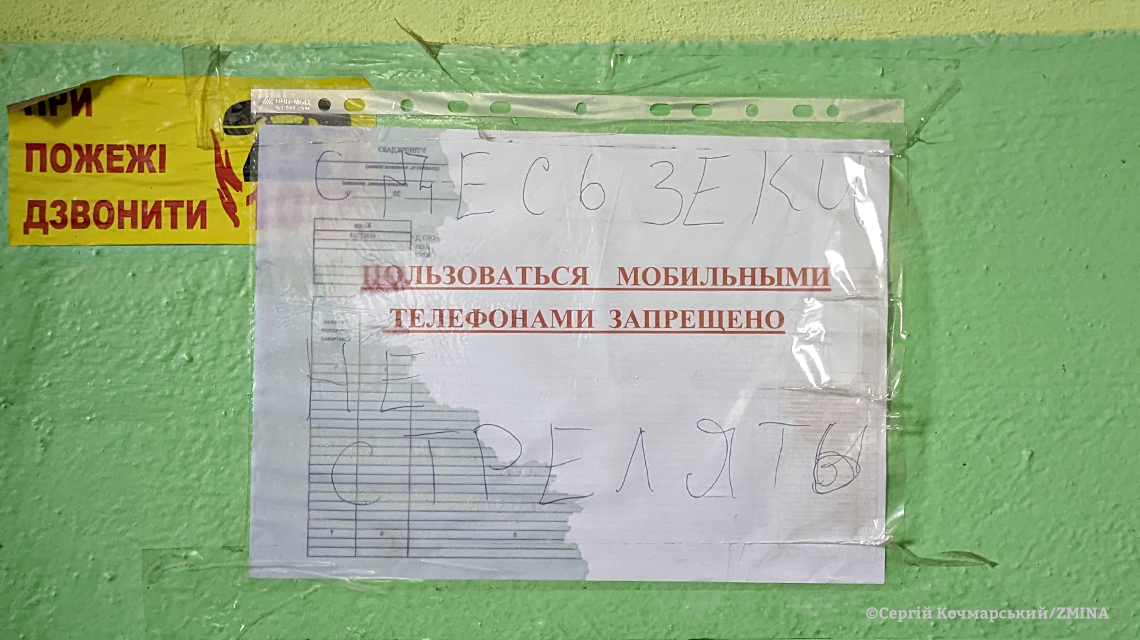 ПРИ
ПОЖЕЖІ
ДЗВОНИТИ
СДЕСЬ ЗЕКИ
ПОЛЬЗОВАТЬСЯ МОБИЛЬНЫМИ
ТЕЛЕФОНАМИ ЗАПРЕЩЕНО
НЕ
СТРЕЛЯТЬ
©Сергій Кочмарський/ZMINA